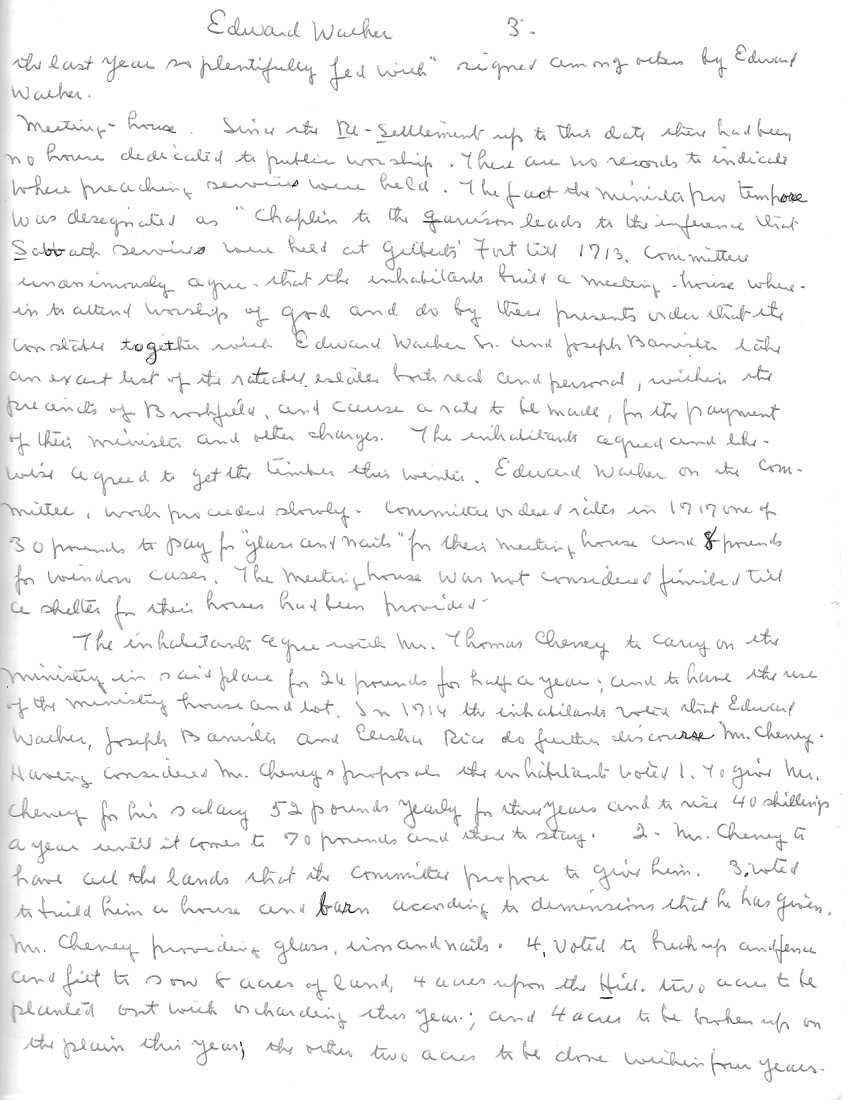 Edward Walker 3.
the last year so plentifully fed with" signed among others by Edward
Walker.
Meeting-house. Since the Re-Settlement up to this date there had been
no house dedicated to public worship. There are no records to indicate
where preaching services were held. The fact the minister pro tempore
was designated as "Chaplin to the garrison leads to the inference that
Sabbath services were held at Gilberts' Fort till 1713. Committee
unanimously agree - that the inhabitants build a meeting-house where-
in to attend worship of god and do by these presents order that the
constable together with Edward Walker Sr. and Joseph Banister take
an exact list of the rateable estates both real and personal, within the
precincts of Brookfield, and cause a rate to be made, for the payment
of their minister and other charges. The inhabitants agreed and like-
wise agreed to get the timber this winter. Edward Walker on the Com-
mittee, work proceeded slowly. Committee ordered rates in 1717 one of
30 pounds to pay for "glass and nails" for their meeting house and 8 pounds
for window cases. The meeting house was not considered finished till
a shelter for their horses had been provided.
The inhabitants agree with Mr. Thomas Cheney to carry on the
ministry in said place for 26 pounds for half a year; and to have the use
of the ministry house and lot. In 1714 the inhabitants voted that Edward
Walker, Joseph Banister and Elisha Rice do further discourse Mr. Cheney.
Having considered Mr. Cheney's proposals the inhabitants voted 1. To give Mr.
Cheney for his salary 52 pounds yearly for three years and to rise 40 shillings
a year until it comes to 70 pounds and there to stay. 2 - Mr. Cheney to
have all the lands that the Committee propose to give him. 3. voted
to build him a house and barn according to dimensions that he has given,
Mr. Cheney providing glass, iron and nails. 4. Voted to break up and fence
and fit to sow 8 acres of land, 4 acres upon the Hill. two acres to be
planted out with orcharding this year; and 4 acres to be broken up on
the plain this year; the other two acres to be done within four years.